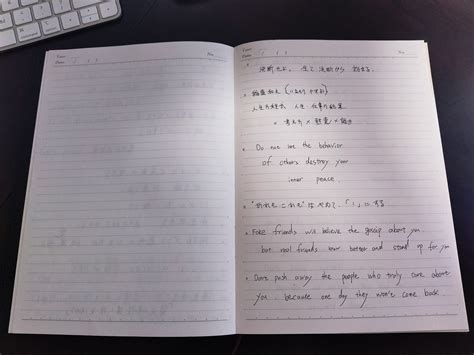 決断せよ。全て決断から始まる。
稲盛和夫（いなもり かずお）
人生の方程式 人生・仕事の結果
= 考え方 × 熱意 × 能力
Do not let the behavior
of others destroy your
inner peace.
"あれも これも" はやめて、「1」にする
Fake friends will believe the gossip about you
but real friends know better and stand up for you
Don't push away the people who truly care about
you because one day they won't come back